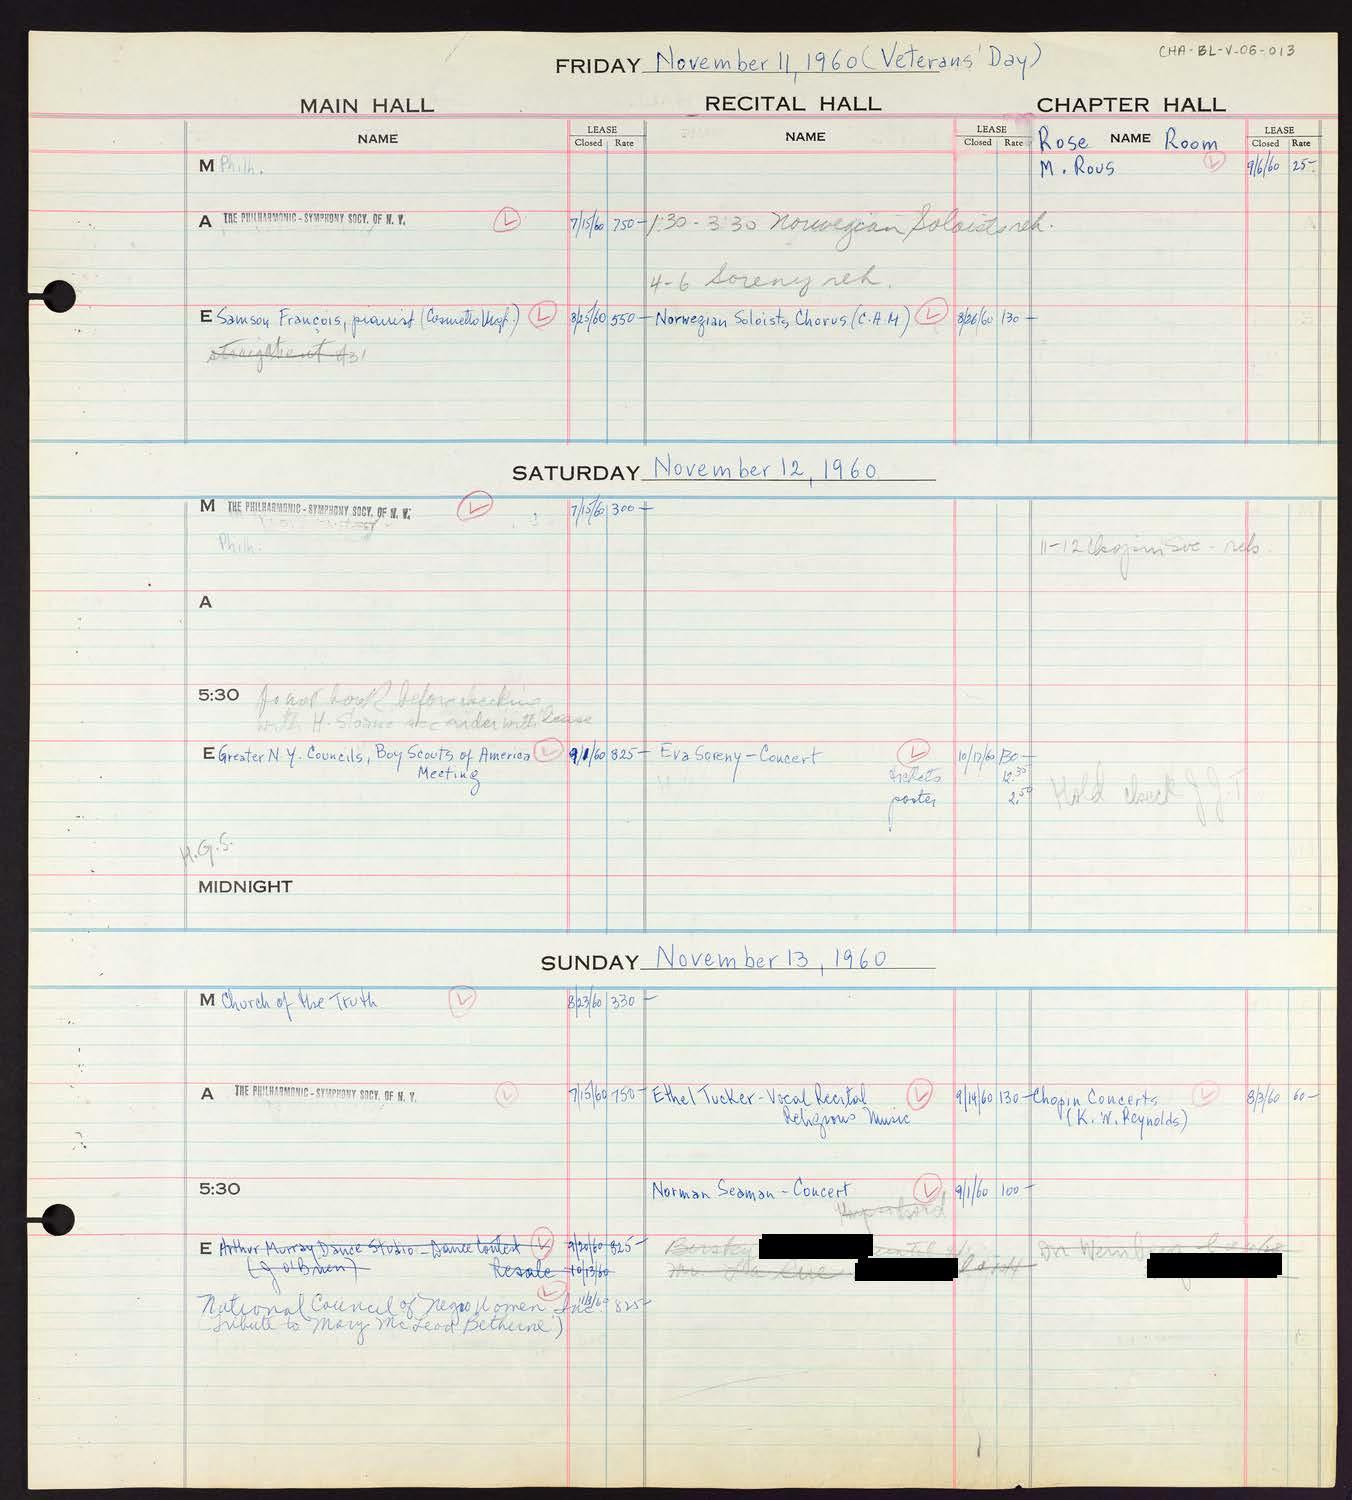 CHA-BL-V-06-013
FRIDAY November 11, 1960 (Veterans' Day)
MAIN HALL RECITAL HALL CHAPTER HALL
NAME LEASE Closed Rate NAME LEASE Closed Rate Rose NAME Room LEASE Closed Rate
M Philh. M. Rous 9/6/60 25-
A THE PHILHARMONIC-SYMPHONY SOCY. OF N. Y. 7/15/60 750- 1:30 - 3:30 Norwegian Soloists reh.
4-6 Soreny reh.
E Samson François, pianist (Cosmetto Mgt.) 8/25/60 550- Norwegian Soloists Chorus (C.A.M) 8/26/60 130-
SATURDAY November 12, 1960
M THE PHILHARMONIC-SYMPHONY SOCY. OF N. Y. 7/15/60 300-
Philh. 11-12 Chopin Soc - reh.
A
5:30 before checking
with H. with lease
E Greater N.Y. Councils, Boy Scouts of America 9/1/60 825- Eva Soreny - Concert 10/17/60 130-
Meeting tickets 12.35
poster 2.50
Hold check J.J.T
H.G.S.
MIDNIGHT
SUNDAY November 13, 1960
M Church of the Truth 8/23/60 330-
A THE PHILHARMONIC-SYMPHONY SOCY. OF N. Y. 7/15/60 750- Ethel Tucker - Vocal Recital 9/14/60 130- Chopin Concerts 8/3/60 60-
Religious Music (K. W. Reynolds)
5:30 Norman Seaman - Concert 9/1/60 100-
E Arthur Murray Dance Studio - Dance Contest 9/20/60 825-
(J O'Brien) Resale 10/13/60
National Council of Negro Women Inc. 825-
(Tribute to Mary McLeod Bethune)